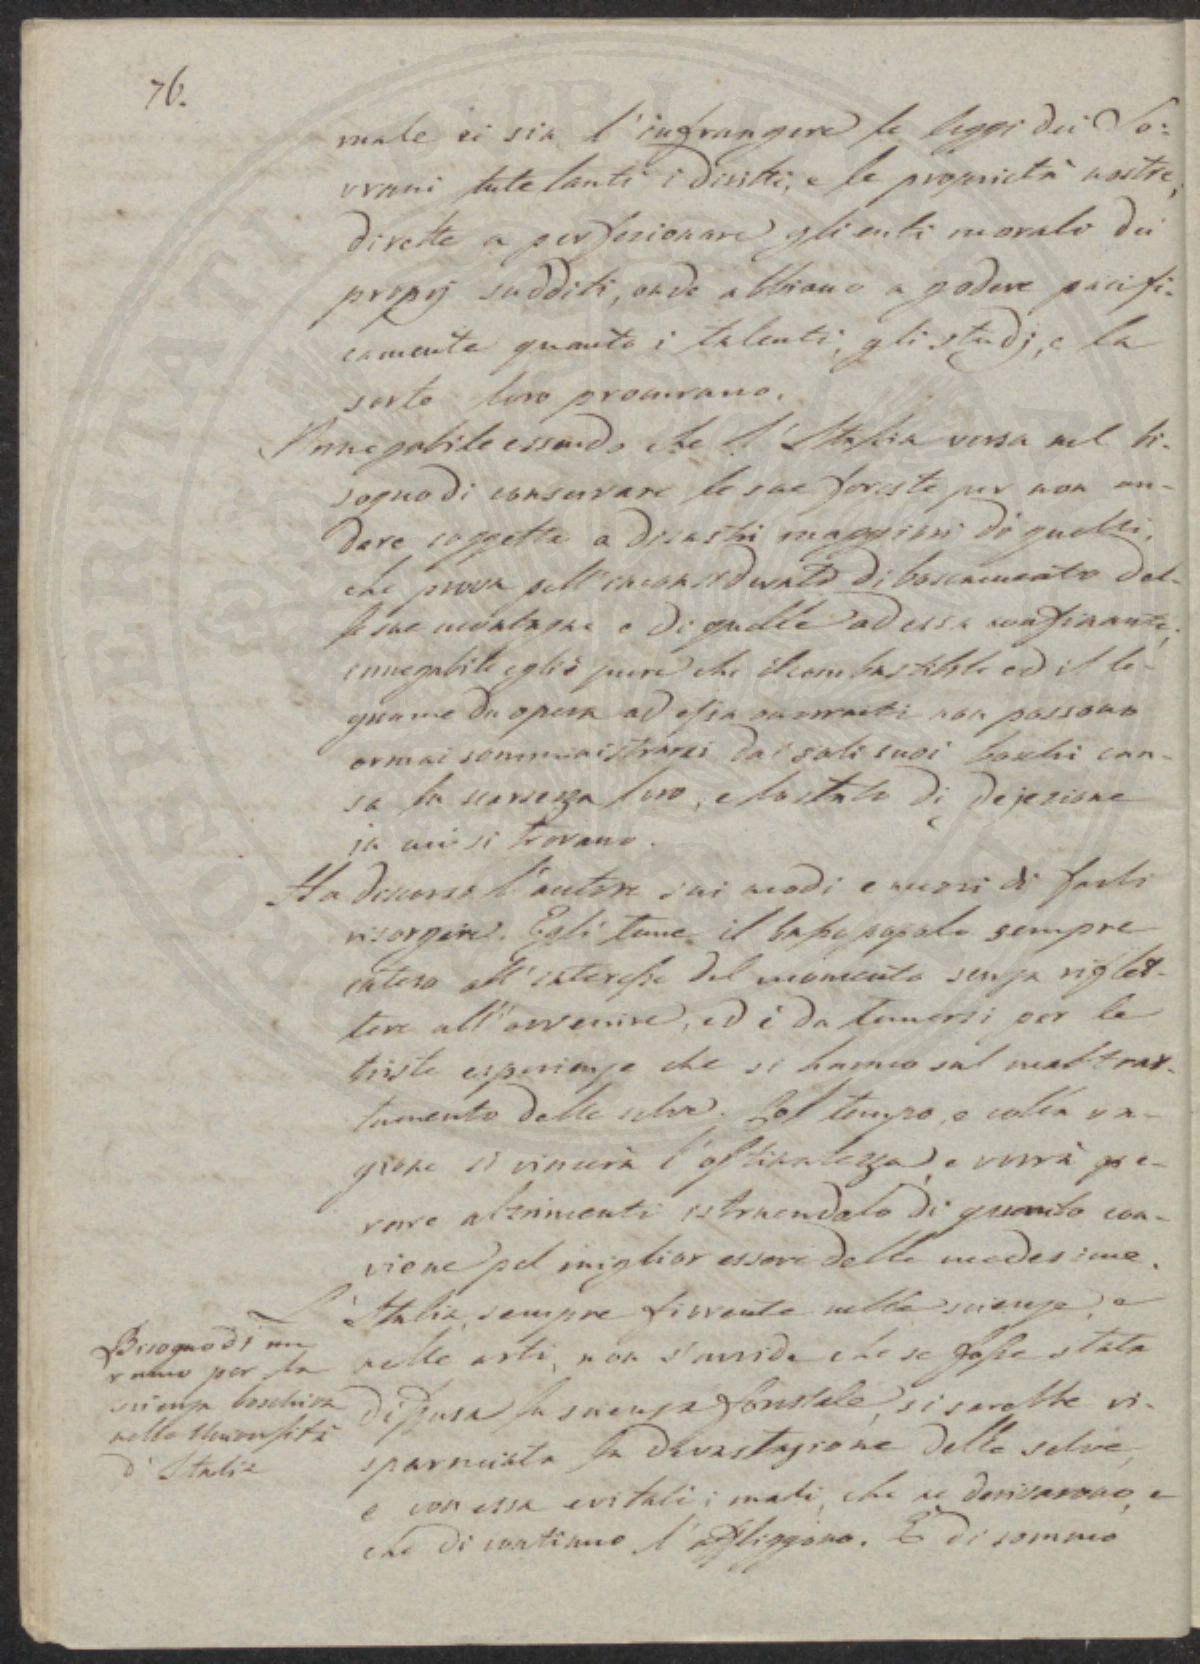 76.
male ci sia l'infrangere le leggi dei So:
vrani tutelanti i diritti, e le proprietà nostre,
dirette a perfezionare gli enti morali dei
proprj sudditi, onde abbiano a godere pacifi-
camente quanto i talenti, gli studj, e la
sorte loro procurano.
Innegabile essendo che l'Italia versa nel bi-
sogno di conservare le sue foreste per non an-
dare soggetta a disastri maggiori di quelli,
che prova pell'inconsiderato diboscamento del-
le sue montagne e di quelle ad essa confinanti;
innegabile egli è pure che il combustibile ed il le-
gname da opera ad essa occorrenti non possono
ormai somministrarsi dai soli suoi boschi cau-
sa la scarsezza loro, e lo stato di dejezione
in cui si trovano.
Ha discorso l'autore sui modi e mezzi di farli
risorgere. Egli teme il basso popolo sempre
inteso all'interesse del momento senza riflet-
tere all'avvenire, ed è da temersi per le
triste esperienze che si hanno sul maltrat-
tamento delle selve. Col tempo, e colla ra-
gione si vincerà l'ostinatezza, e verrà
altrimenti istruendolo di quanto con-
viene pel miglior essere delle medesime.
L'Italia, sempre fiorente nelle scienze, e
nelle arti, non s'avvide che se fosse stata
diffusa la scienza forestale, si sarebbe ri-
sparmiata la devastazione delle selve,
e con essa evitati i mali, che ne derivarono, e
che di continuo l'affliggono. È di sommo
Bisogno di
per la
scienza boschiva
nelle Università
d'Italia